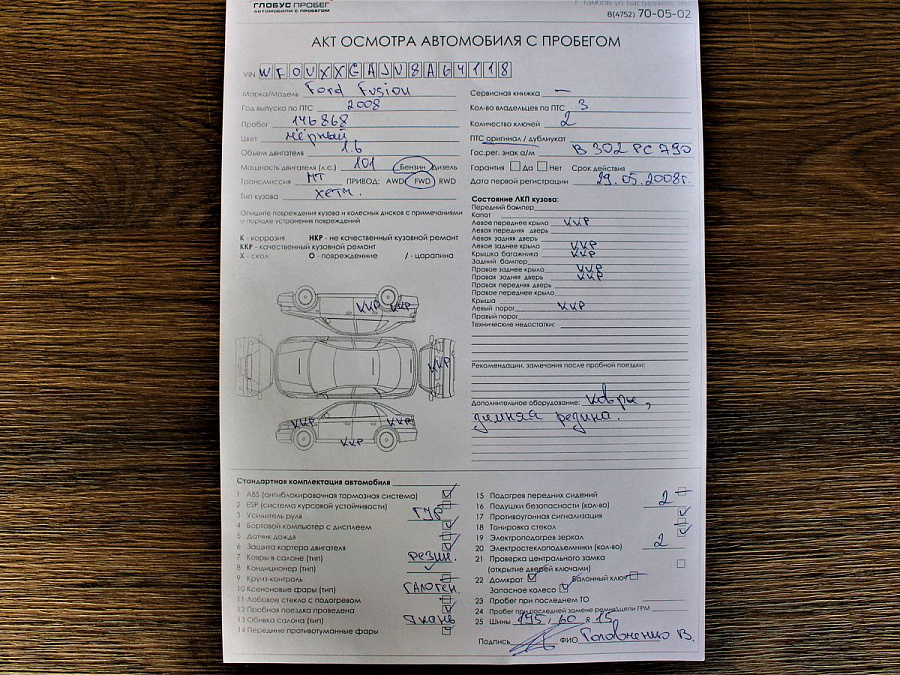 ГЛОБУС ПРОБЕГ
АВТОМОБИЛИ С ПРОБЕГОМ
8(4752) 70-05-02
АКТ ОСМОТРА АВТОМОБИЛЯ С ПРОБЕГОМ
VIN WF0UXXGAJU8A64118
Марка/Модель Ford Fusion
Год выпуска по ПТС 2008
Пробег 146868
Цвет чёрный
Объем двигателя 1.6
Мощность двигателя (л.с.) 101 Бензин Дизель
Трансмиссия МТ ПРИВОД: AWD FWD RWD
Тип кузова хетч.
Опишите повреждения кузова и колесных дисков с примечаниями
о порядке устранения повреждений
К - коррозия НКР - не качественный кузовной ремонт
ККР - качественный кузовной ремонт
Х - скол О - повреждение / - царапина
ККР ККР
ККР
ККР ККР
ККР
Сервисная книжка —
Кол-во владельцев по ПТС 3
Количество ключей 2
ПТС оригинал / дубликат
Гос.рег. знак а/м В 302 РС 790
Гарантия Да Нет Срок действия
Дата первой регистрации 29.05.2008г.
Состояние ЛКП кузова:
Передний бампер
Капот
Левое переднее крыло ККР
Левая передняя дверь
Левая задняя дверь
Левое заднее крыло ККР
Крышка багажника ККР
Задний бампер
Правое заднее крыло ККР
Правая задняя дверь ККР
Правая передняя дверь
Правое переднее крыло
Крыша
Левый порог ККР
Правый порог
Технические недостатки:
Рекомендации, замечания после пробной поездки:
Дополнительное оборудование: ковры,
зимняя резина.
Стандартная комплектация автомобиля
1 ABS (антиблокировочная тормозная система)
2 ESP (система курсовой устойчивости)
3 Усилитель руля ГУР
4 Бортовой компьютер с дисплеем
5 Датчик дождя
6 Защита картера двигателя
7 Ковры в салоне (тип) резин.
8 Кондиционер (тип)
9 Круиз-контроль
10 Ксеноновые фары (тип) галоген.
11 Лобовое стекло с подогревом
12 Пробная поездка проведена
13 Обивка салона (тип) ткань
14 Передние противотуманные фары
15 Подогрев передних сидений
16 Подушки безопасности (кол-во) 2
17 Противоугонная сигнализация
18 Тонировка стекол
19 Электроподогрев зеркал
20 Электростеклоподъемники (кол-во) 2
21 Проверка центрального замка
(открытие дверей ключами)
22 Домкрат Балонный ключ
Запасное колесо
23 Пробег при последнем ТО
24 Пробег при последней замене ремня/цепи ГРМ
25 Шины 195 / 60 R 15
Подпись ФИО Головченко В.